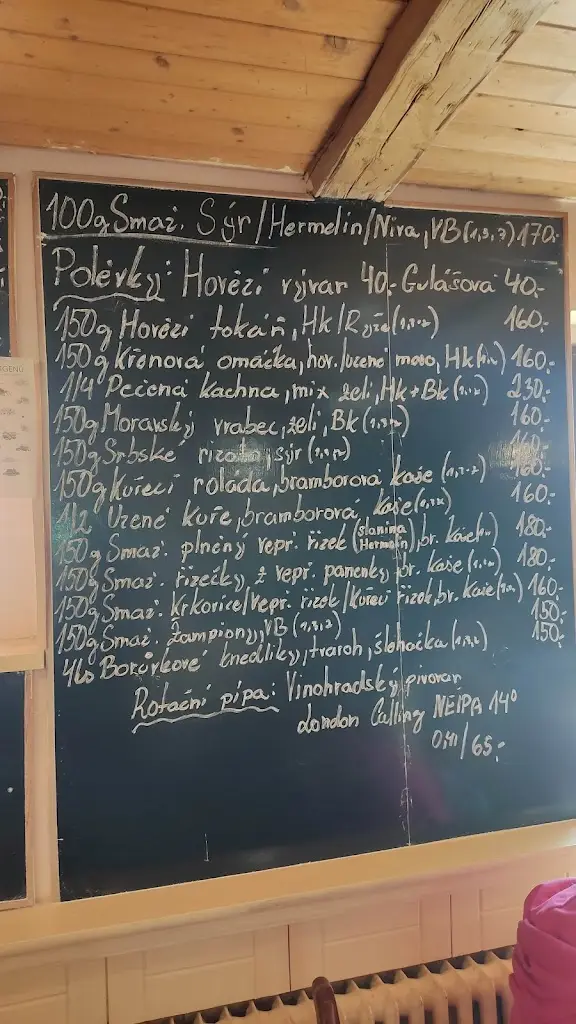 100g Smaž. Sýr/Hermelín/Niva, VB (1,3,7) 170.-
Polévky: Hovězí vývar 40.- Gulášová 40.-
150g Hovězí tokáň, Hk/Rýže (1,3,7) 160.-
150g Křenová omáčka, hov./uzené maso, Hk 160.-
1/4 Pečená kachna, mix zelí, Hk+Bk 230.-
150g Moravský vrabec, zelí, Bk 160.-
150g Srbské rizoto, sýr 160.-
150g Kuřecí roláda, bramborová kaše 160.-
1/2 Uzené kuře, bramborová kaše 160.-
150g Smaž. plněný vepř. řízek (slanina Hermelín), br. kaše 180.-
150g Smaž. řízečky z vepř. panenky br. kaše 180.-
150g Smaž. Krkovice/Vepř. řízek/Kuřecí řízek, br. kaše 160.-
150g Smaž. žampiony, VB 150.-
4ks Borůvkové knedlíky, tvaroh, šlehačka 150.-
Rotační pípa: Vinohradský pivovar
London Calling NEIPA 14°
0,4l/65.-